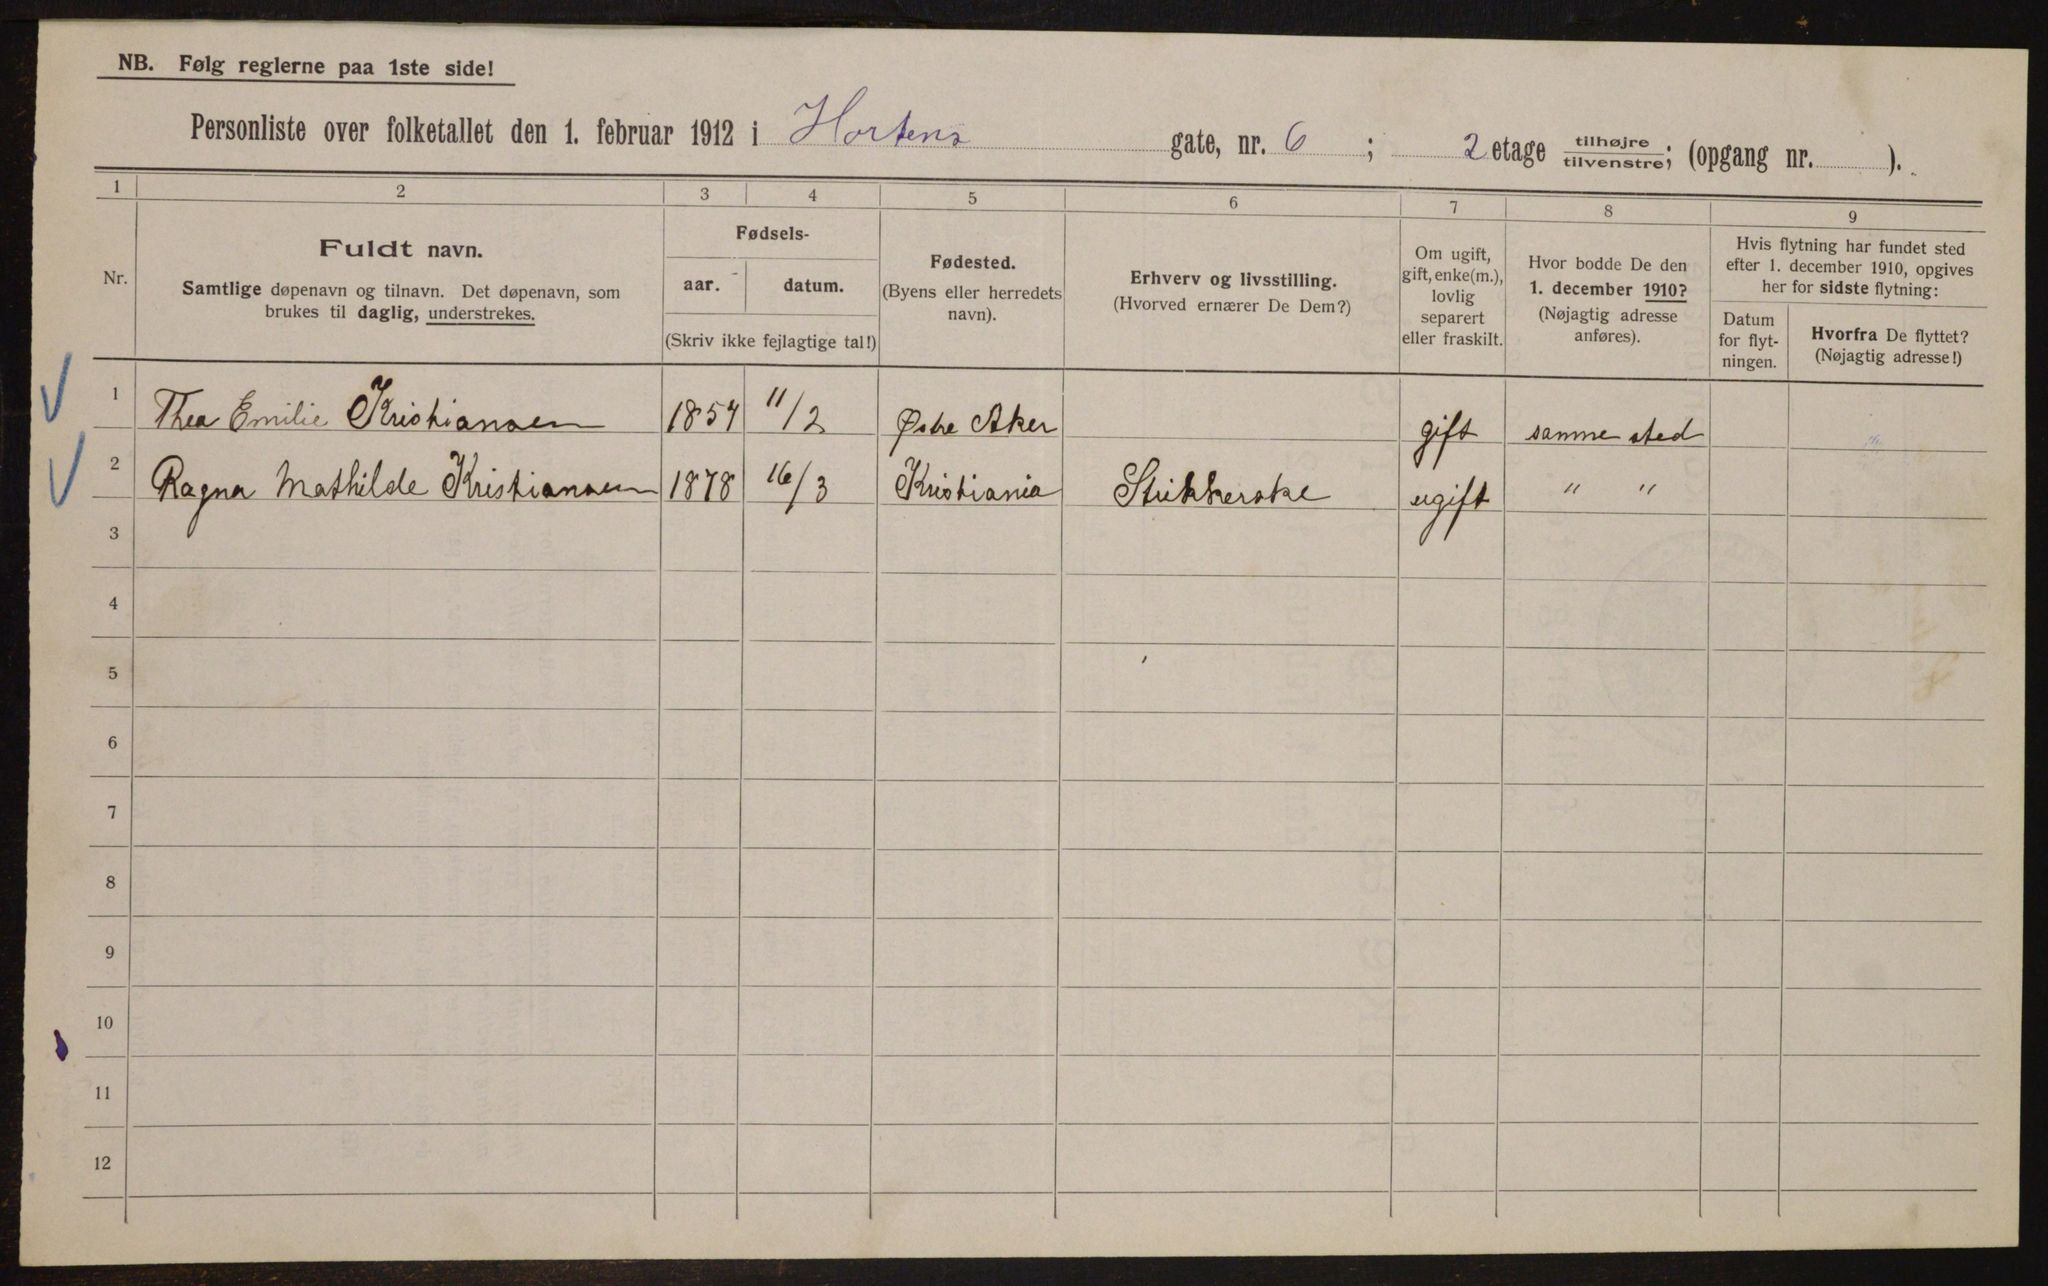 NB. Følg reglerne paa 1ste side!
Personliste over folketallet den 1. februar 1912 i Hortens gate, nr. 6 ; 2 etage tilhøjre/tilvenstre; (opgang nr. ).
1 2 3 4 5 6 7 8 9
Nr.
Fuldt navn.
Samtlige døpenavn og tilnavn. Det døpenavn, som
brukes til daglig, understrekes.
Fødsels-
aar. datum.
(Skriv ikke fejlagtige tal!)
Fødested.
(Byens eller herredets
navn).
Erhverv og livsstilling.
(Hvorved ernærer De Dem?)
Om ugift,
gift, enke(m.),
lovlig
separert
eller fraskilt.
Hvor bodde De den
1. december 1910?
(Nøjagtig adresse
anføres).
Hvis flytning har fundet sted
efter 1. december 1910, opgives
her for sidste flytning:
Datum
for flyt-
ningen.
Hvorfra De flyttet?
(Nøjagtig adresse!)
1 Thea Emilie Kristiansen 1857 11/2 Østre Aker gift samme sted
2 Ragna Mathilde Kristiansen 1878 16/3 Kristiania Strikkerske ugift " "
3
4
5
6
7
8
9
10
11
12